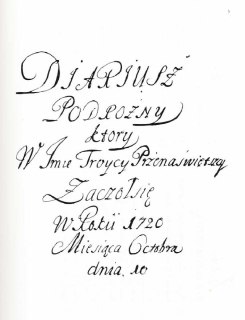 DIARIUSZ
PODROZNY
ktory
W Imie Troycy Przenaświętszy
Zaczoł się
W Rokű 1720
Miesiąca Octobra
dnia. 10